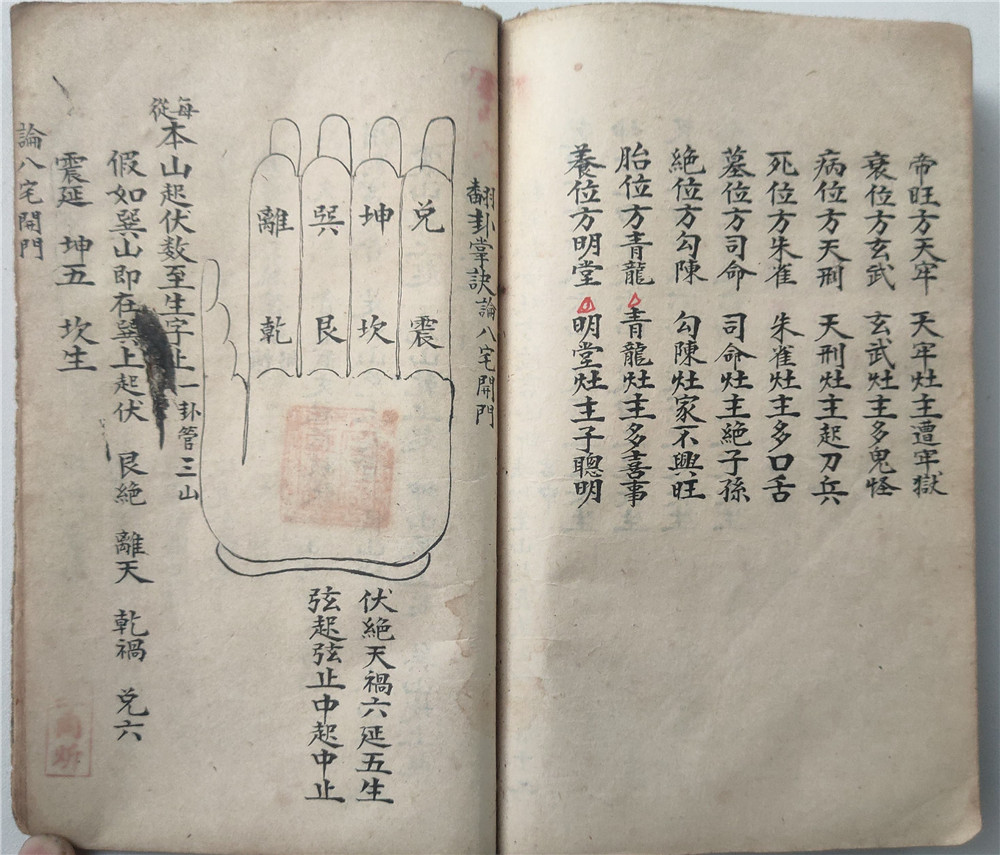 帝旺方天牢　天牢灶主遭牢獄
衰位方玄武　玄武灶主多鬼怪
病位方天刑　天刑灶主起刀兵
死位方朱雀　朱雀灶主多口舌
墓位方司命　司命灶主絶子孫
絶位方勾陳　勾陳灶家不興旺
胎位方青龍　青龍灶主多喜事
養位方明堂　明堂灶主子聰明
翻卦掌訣論八宅開門
兌　震
坤　坎
巽　艮
離　乾
伏絶天禍六延五生
弦起弦止中起中止
每從本山起伏数至生字止一卦管三山
假如巽山即在巽上起伏　艮絶　離天　乾禍　兌六
震延　坤五　坎生
論八宅開門